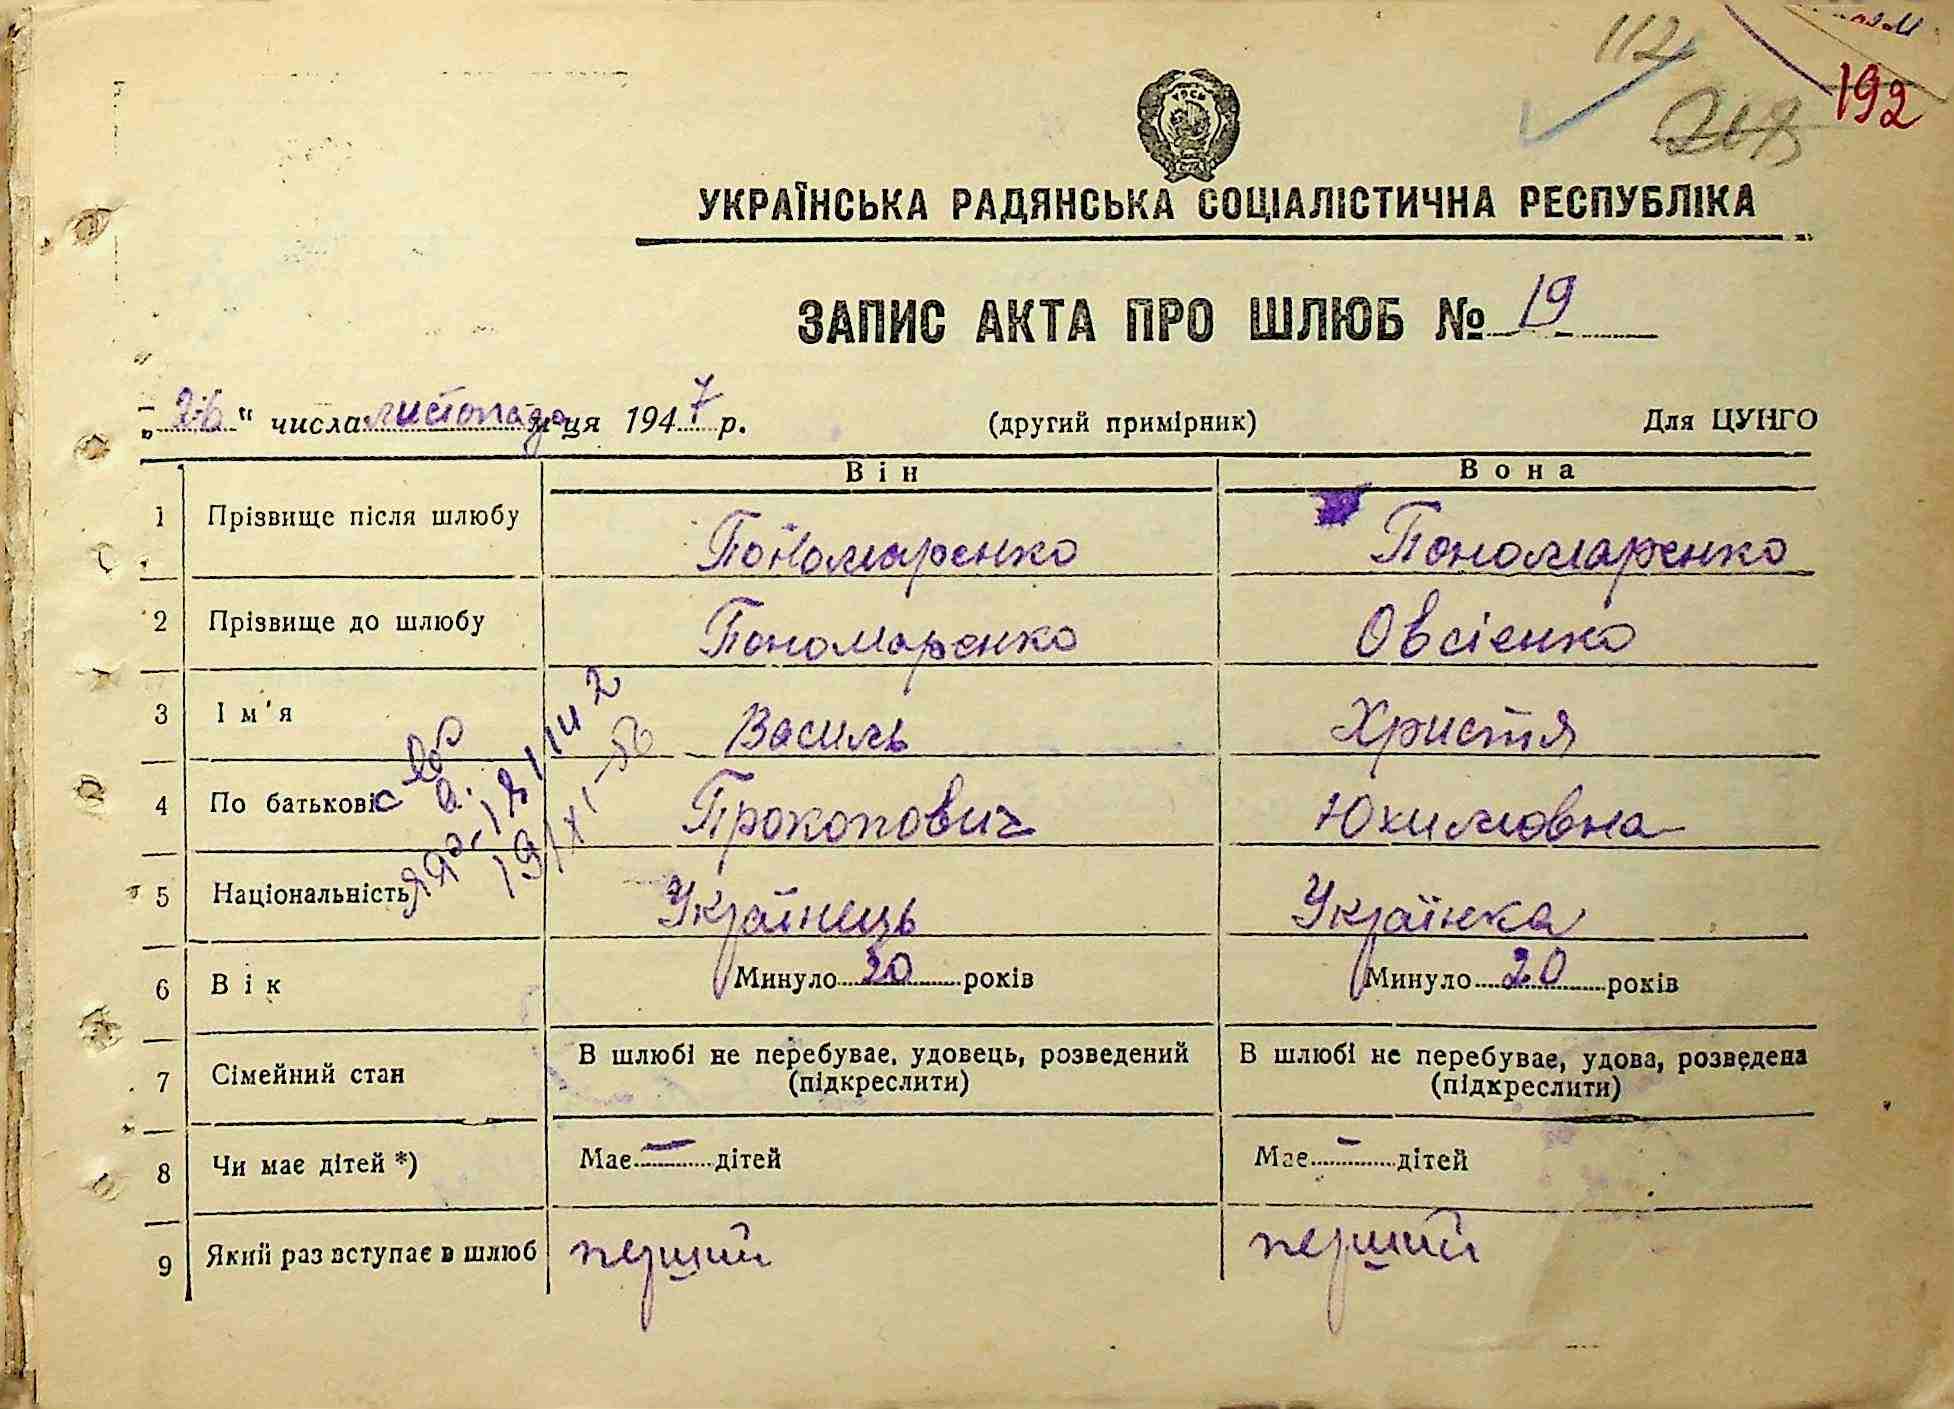 112
218
192
УРСР
УКРАЇНСЬКА РАДЯНСЬКА СОЦІАЛІСТИЧНА РЕСПУБЛІКА
ЗАПИС АКТА ПРО ШЛЮБ № 19
„26“ числа листопада м-ця 1947 р. (другий примірник) Для ЦУНГО
Він Вона
1 Прізвище після шлюбу Пономаренко Пономаренко
2 Прізвище до шлюбу Пономаренко Овсієнко
3 Ім'я Василь Христя
4 По батькові Прокопович Юхимовна
5 Національність Українець Українка
6 Вік Минуло 20 років Минуло 20 років
7 Сімейний стан В шлюбі не перебуває, удовець, розведений В шлюбі не перебуває, удова, розведена
(підкреслити) (підкреслити)
8 Чи має дітей *) Має — дітей Має — дітей
9 Який раз вступає в шлюб перший перший
19/XI-56